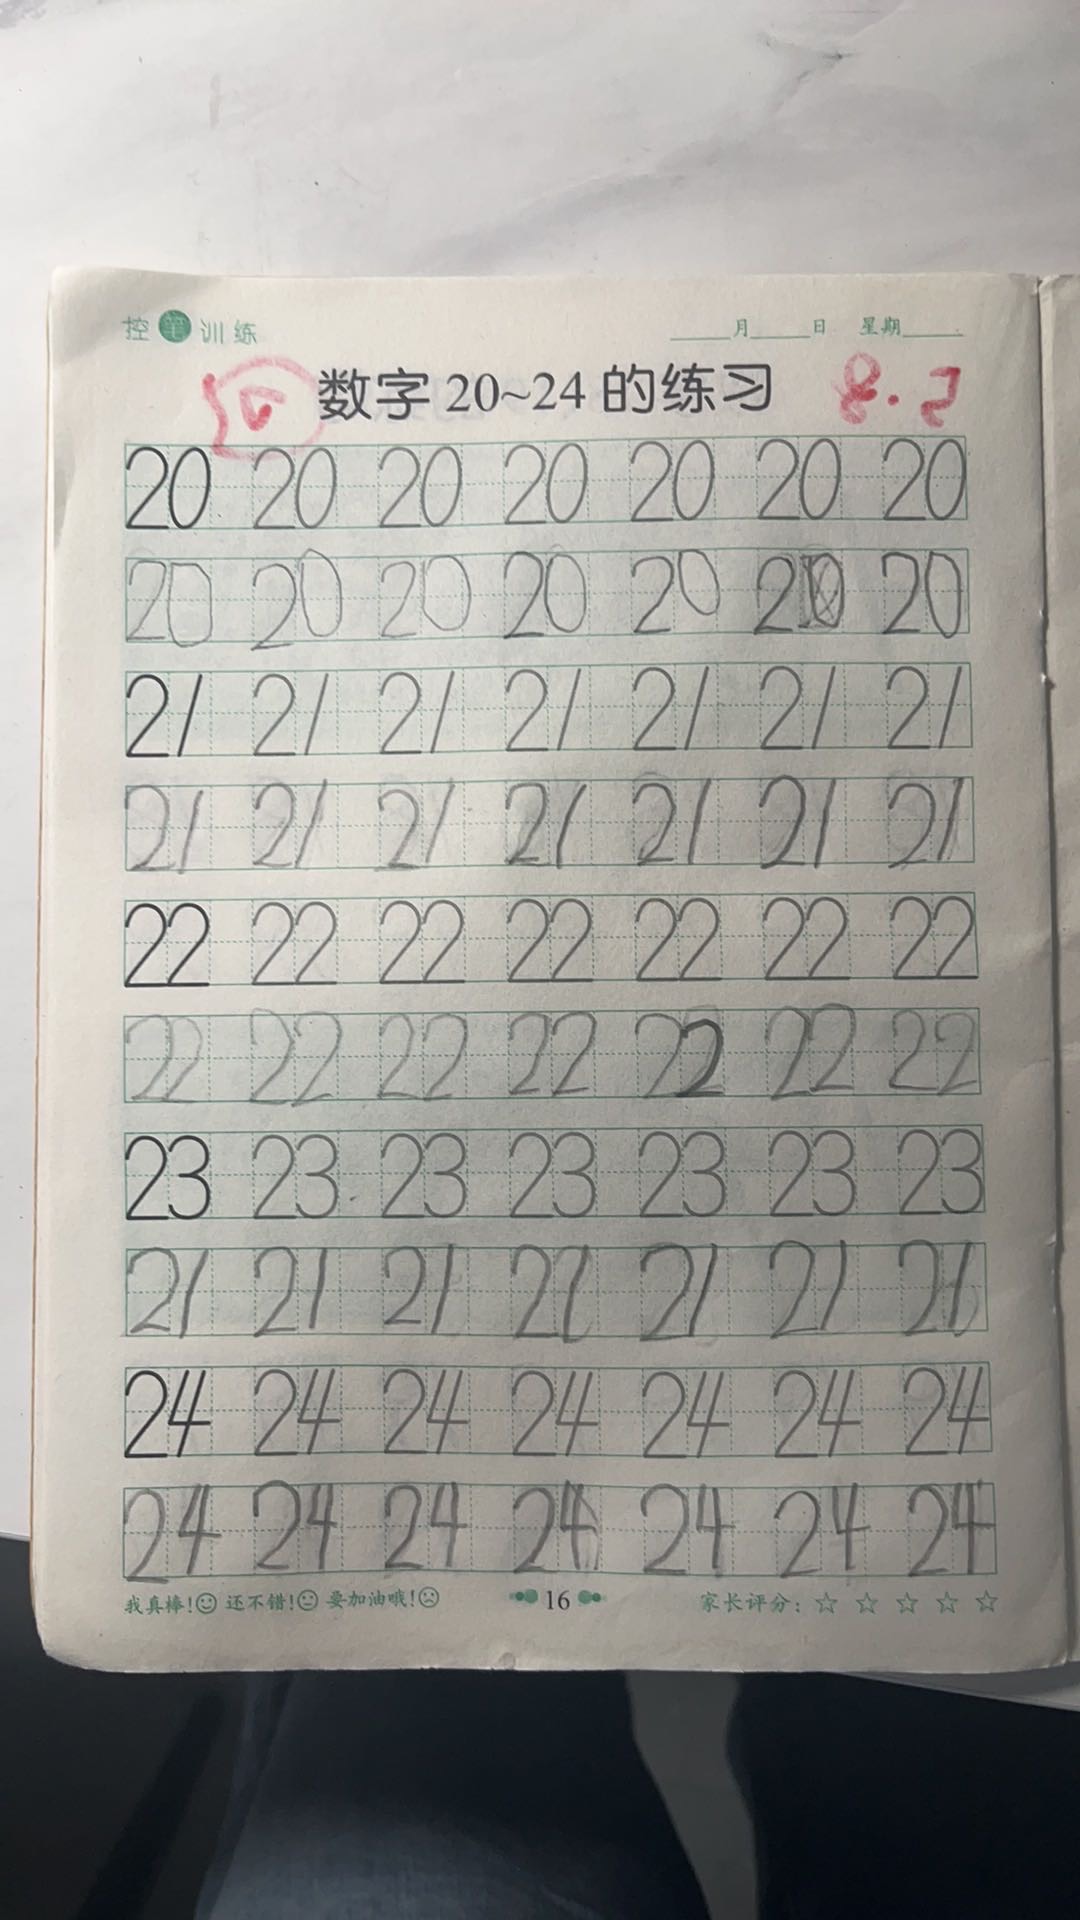 控笔训练 ____月____日 星期____
数字20~24的练习 8.2
20 20 20 20 20 20 20
20 20 20 20 20 20 20
21 21 21 21 21 21 21
21 21 21 21 21 21 21
22 22 22 22 22 22 22
22 22 22 22 22 22 22
23 23 23 23 23 23 23
21 21 21 21 21 21 21
24 24 24 24 24 24 24
24 24 24 24 24 24 24
我真棒! 还不错! 要加油哦! 16 家长评分: ☆ ☆ ☆ ☆ ☆